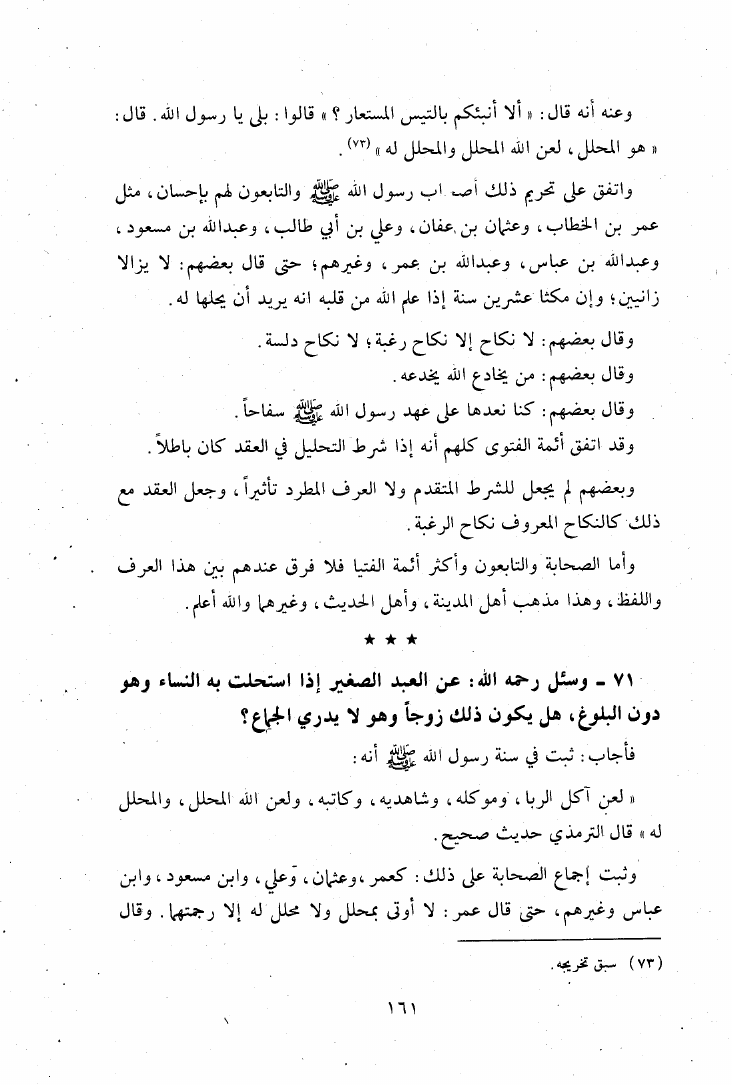 وعنه أنه قال: « ألا أنبئكم بالتيس المستعار ؟ » قالوا : بلى يا رسول الله . قال :
« هو المحلل ، لعن الله المحلل والمحلل له » (٧٣) .
واتفق على تحريم ذلك أصـ اب رسول الله ﷺ والتابعون لهم بإحسان ، مثل
عمر بن الخطاب ، وعثمان بن عفان ، وعلي بن أبي طالب ، وعبدالله بن مسعود ،
وعبدالله بن عباس ، وعبدالله بن عمر ، وغيرهم ؛ حتى قال بعضهم : لا يزالا
زانيين ؛ وإن مكثا عشرين سنة إذا علم الله من قلبه انه يريد أن يحلها له .
وقال بعضهم : لا نكاح إلا نكاح رغبة ؛ لا نكاح دلسة .
وقال بعضهم : من يخادع الله يخدعه .
وقال بعضهم : كنا نعدها على عهد رسول الله ﷺ سفاحاً .
وقد اتفق أئمة الفتوى كلهم أنه إذا شرط التحليل في العقد كان باطلاً .
وبعضهم لم يجعل للشرط المتقدم ولا العرف المطرد تأثيراً ، وجعل العقد مع
ذلك كالنكاح المعروف نكاح الرغبة .
وأما الصحابة والتابعون وأكثر أئمة الفتيا فلا فرق عندهم بين هذا العرف
واللفظ ، وهذا مذهب أهل المدينة ، وأهل الحديث ، وغيرهما والله أعلم .
★ ★ ★
٧١ - وسئل رحمه الله : عن العبد الصغير إذا استحلت به النساء وهو
دون البلوغ ، هل يكون ذلك زوجاً وهو لا يدري الجماع ؟
فأجاب : ثبت في سنة رسول الله ﷺ أنه :
« لعن آكل الربا ، وموكله ، وشاهديه ، وكاتبه ، ولعن الله المحلل ، والمحلل
له » قال الترمذي حديث صحيح .
وثبت إجماع الصحابة على ذلك : كعمر ، وعثمان ، وعلي ، وابن مسعود ، وابن
عباس وغيرهم ، حتى قال عمر : لا أوتى بمحلل ولا محلل له إلا رجمتهما . وقال
(٧٣) سبق تخريجه .
١٦١